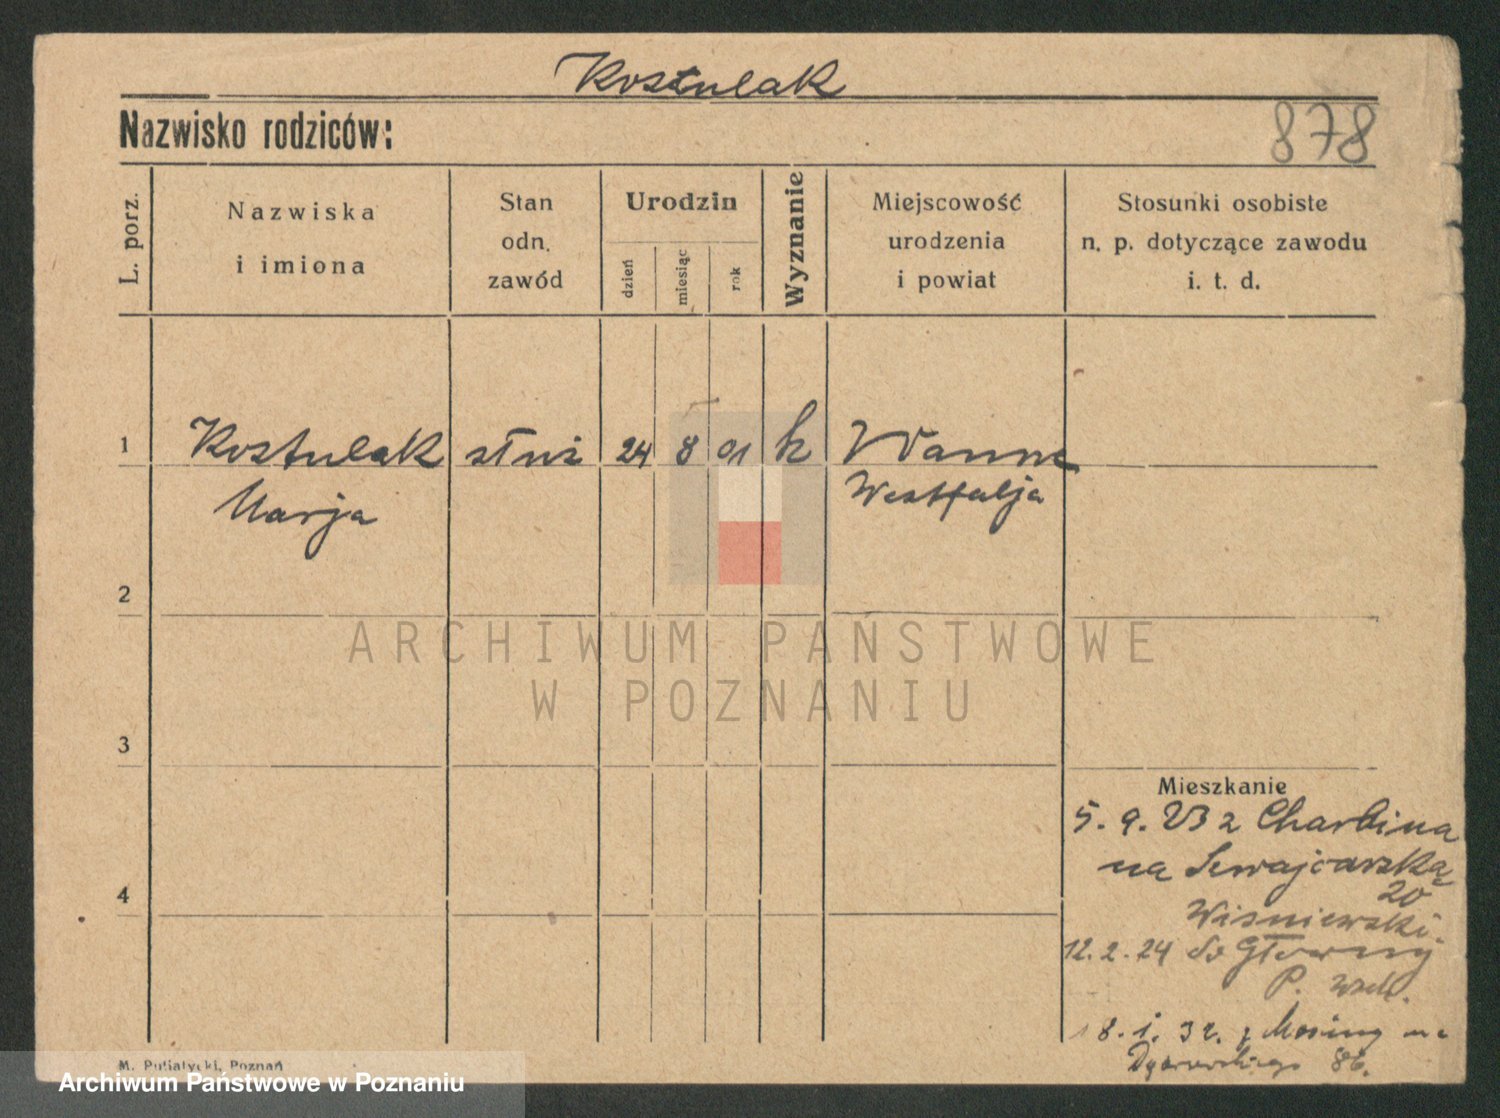 Kostulak
Nazwisko rodziców:
878
L. porz.
Nazwiska
i imiona
Stan
odn.
zawód
Urodzin
dzień
miesiąc
rok
Wyznanie
Miejscowość
urodzenia
i powiat
Stosunki osobiste
n. p. dotyczące zawodu
i. t. d.
1 Kostulak służ 24 8 01 k Wanne
Marja Westfalja
2
ARCHIWUM PAŃSTWOWE
W POZNANIU
3
Mieszkanie
5. 9. 23 z Charbina
na Szwajcarską
20
4
Wiśniewski.
12. 2. 24 do Główny
P. Wsch.
18. 1. 32. z Mosiny na
86.
M. Putiatycki, Poznań
Archiwum Państwowe w Poznaniu